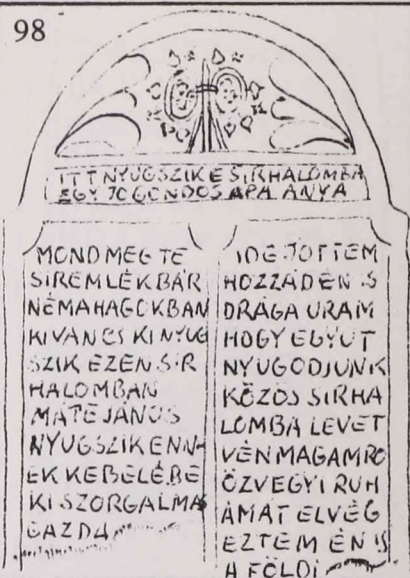 98
ITT NYUGSZIK E SIRHALOMBA
EGY JO GONDOS APA ANYA
MOND MEG TE
SIREMLÉK BÁR
NÉMA HAGOKBAN
KIVANCS KI NYUG
SZIK EZEN SIR
HALOMBAN
MÁTÉ JÁNOS
NYUGSZIK ENN-
EK KEBELÉBE
KI SZORGALMAS
GAZDA
IDE JÖTTEM
HOZZÁD ÉN IS
DRÁGA URAM
HOGY EGYÜT
NYUGODJUNK
KÖZÖS SIRHA
LOMBA LEVET
VÉN MAGAMRO
ÖZVEGYI RUH
ÁMAT ELVÉG
EZTEM ÉN IS
A FÖLDI